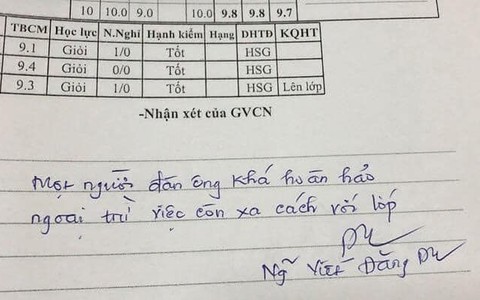 10 10.0 9.0 10.0 9.8 9.8 9.7
TBCM Học lực N.Nghỉ Hạnh kiểm Hạng DHTĐ KQHT
9.1 Giỏi 1/0 Tốt HSG
9.4 Giỏi 0/0 Tốt HSG
9.3 Giỏi 1/0 Tốt HSG Lên lớp
-Nhận xét của GVCN
Một người đàn ông khá hoàn hảo
ngoại trừ việc còn xa cách với lớp
Ngỡ Viết Đăng Du